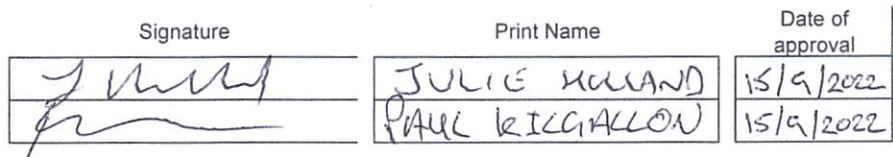 Signature Print Name Date of
approval
J Holland JULIE HOLLAND 15/9/2022
PAUL KILGALLON 15/9/2022